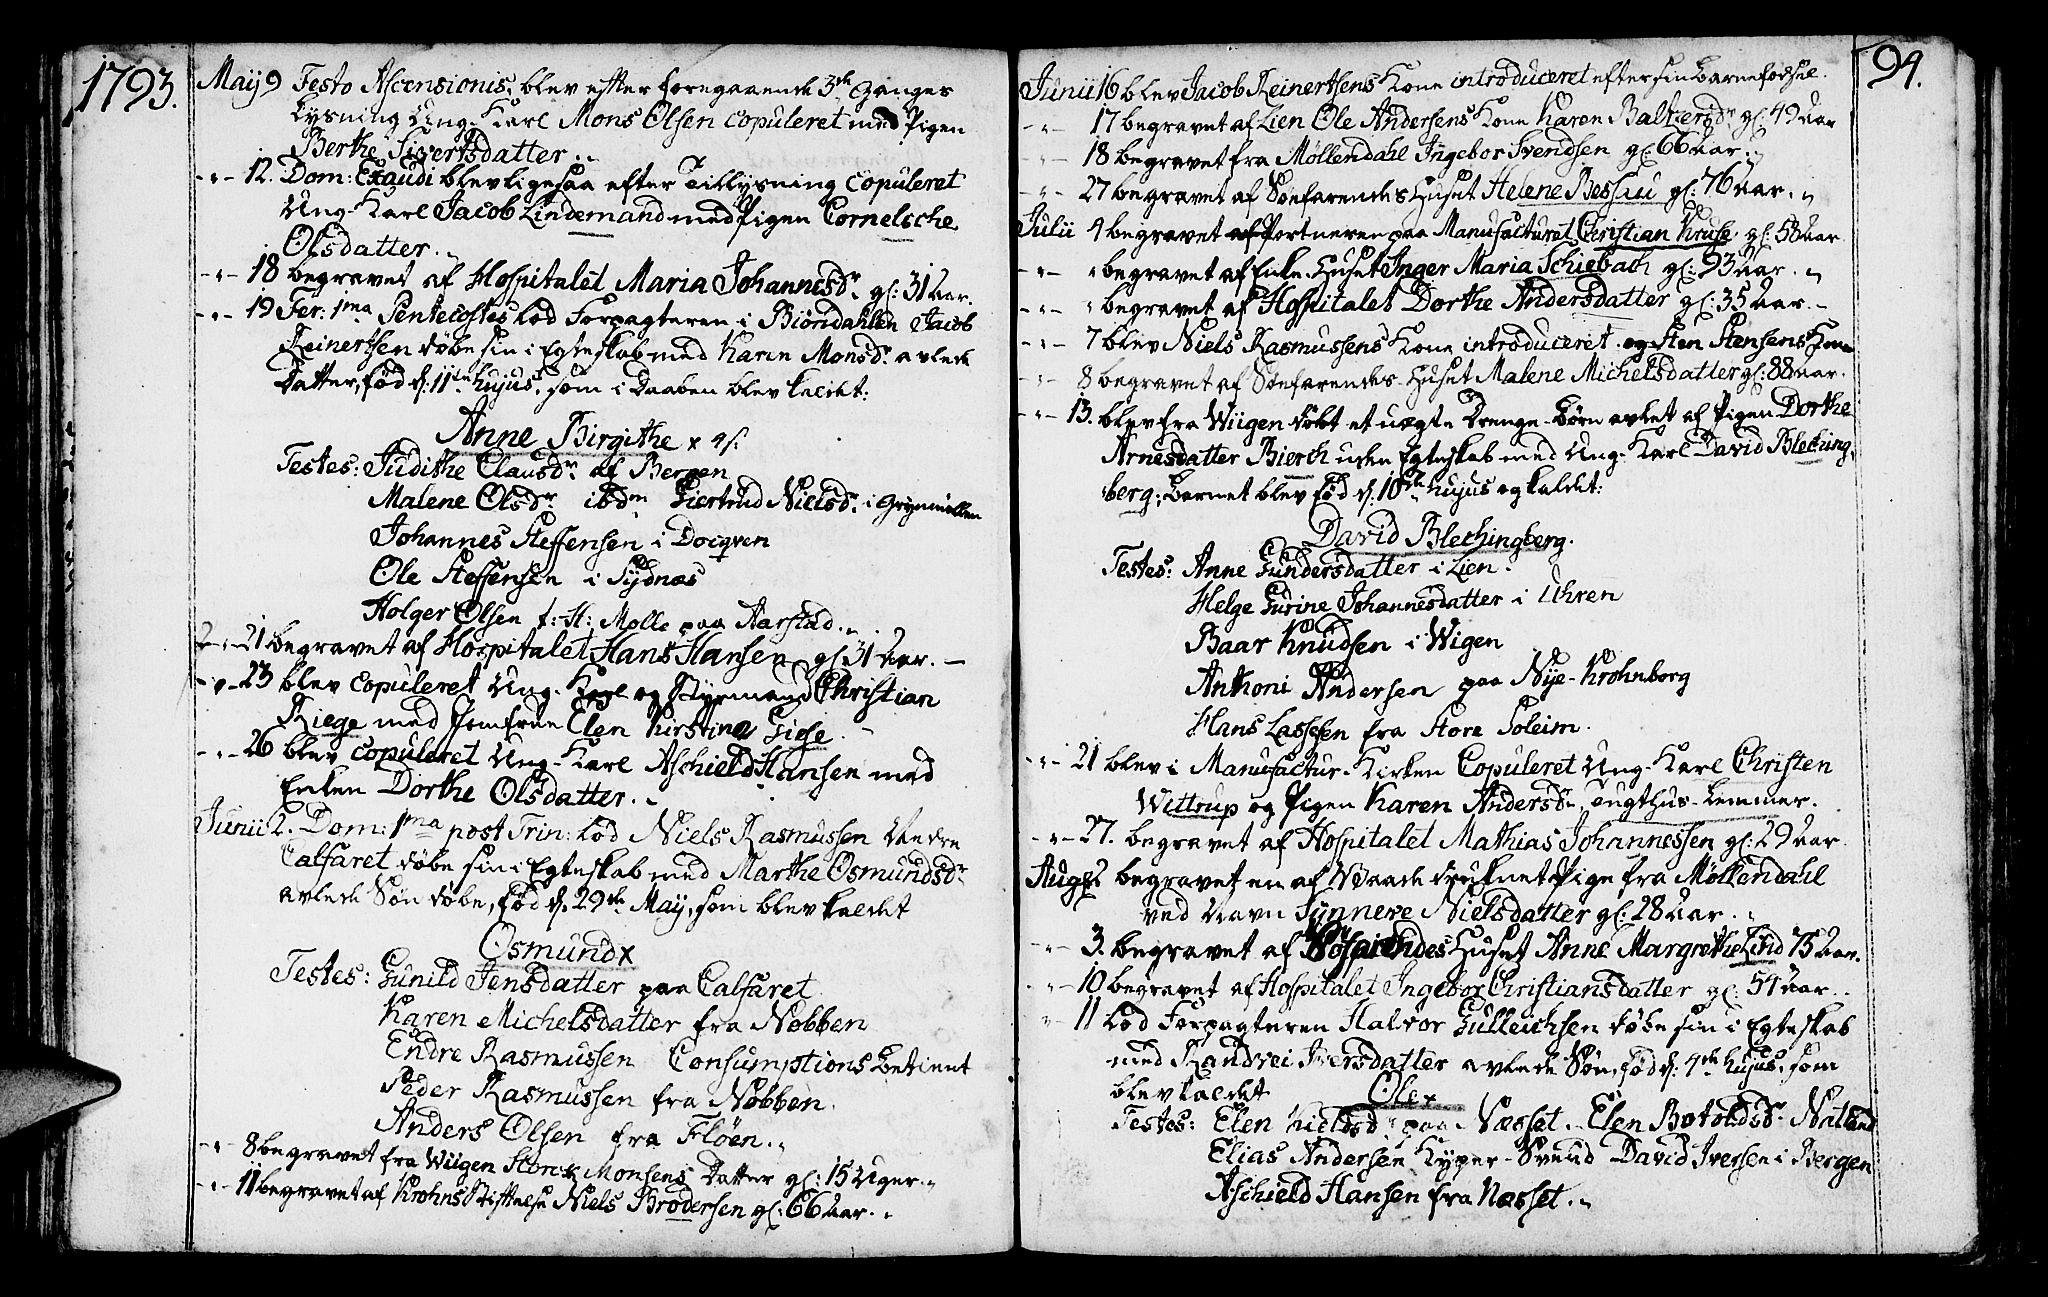 1793.
Maij 9 Festo Ascensionis, blev efter foregaaende 3de Ganges
Lysning Ung-Karl Mons Olsen copuleret med Pigen
Berthe Sivertsdatter.
-"- 12. Dom: Exaudi blev ligesaa efter Tillysning copuleret
Ung-Karl Jacob Lindemand med Pigen Cornelsche
Olsdatter.
-"- 18 begravet af Hospitalet Maria Johannesdr. gl: 31 Aar.
-"- 19 Fer: 1ma Pentecostes lod Forpagteren i Biørndahlen Jacob
Reinertsen døbe sin i Egteskab med Karen Monsdr. avlede
Datter, fød d. 11te hujus, som i Daaben blev kaldet:
Anne Birgithe x
Testes: Judithe Clausdr. af Bergen
Malene Olsdr. ibdm Giertrud Nielsdr. i Grynmøllen
Johannes Steffensen i Docqven
Ole Steffensen i Sydnæs
Holger Olsen t: H: Mølle paa Aarstad.
-"- 21 begravet af Hospitalet Hans Hansen gl. 31 Aar.
-"- 23 blev copuleret Ung-Karl og Styrmand Christian
Riege med Jomfrue Elen Kirstina Giese.
-"- 26 blev copuleret Ung-Karl Aschield Hansen med
Enken Dorthe Olsdatter.
Junii 2. Dom: 1ma post Trin: lod Niels Rasmussen Nedre
Calfaret døbe sin i Egteskab med Marthe Osmundsdr
avlede Søn døbe, fød d. 29de Maij, som blev kaldet
Osmund x
Testes: Gunild Jensdatter paa Calfaret
Karen Michelsdatter fra Nøbben
Endre Rasmussen Consumptions Betient
Peder Rasmussen fra Nøbben.
Anders Olsen fra Fløen.
-"- 8 begravet fra Wiigen Monsens Datter gl: 15 Uger.
-"- 11 begravet af Krohns Stiftelse Niels Brodersen gl: 66 Aar.
94.
Junii 16 blev Jacob Reinertsens Kone introduceret efter sin Barnefødsel.
-"- 17 begravet af Lien Ole Andersens Kone Karen Baltzersdr. gl. 49 Aar
-"- 18 begravet fra Møllendahl Ingebor Svendsen gl. 66 Aar.
-"- 27 begravet af Søefarendes Huset Helene Bessau gl. 76 Aar.
Julii 4 begravet af Portneren paa Manufacturet Christian Kruse, gl. 58 Aar
-"- " begravet af Enke-Huset Inger Maria Schiebach gl: 93 Aar.
-"- " begravet af Hospitalet Dorthe Andersdatter gl: 35 Aar.
-"- 7 blev Niels Rasmussens Kone introduceret og Sten Stensens Kone
-"- 8 begravet af Søefarendes-Huset Malene Michelsdatter gl: 88 Aar.
-"- 13. blev fra Wiigen døbt et uægte Drenge-Børn avlet af Pigen Dorthe
Arnesdatter Bierch uden Egteskab med Ung-Karl David Bleching-
berg; Barnet blev fød d. 10de hujus og kaldet:
David Blechingberg.
Testes: Anne Gundersdatter i Lien.
Helge Gurine Johannesdatter i Uhren
Baar Knudsen i Wigen
Anthoni Andersen paa Nye-Krohnborg
Hans Lassesen fra Store Soleim.
-"- 21 blev i Manufactur-Kirken Copuleret Ung-Karl Christen
Wittrup og Pigen Karen Andersdr, Tugthus-Lemmer.
-"- 27. begravet af Hospitalet Mathias Johannessen gl: 29 Aar.
Aug: begravet en af Vaade druknet Pige fra Møllendahl
ved Navn Synneve Nielsdatter gl: 28 Aar.
-"- 3. begravet af Huset Anne Margrethe Lind 75 Aar.
-"- 10 begravet af Hospitalet Ingebor Christiansdatter gl: 54 Aar.
-"- 11 lod Forpagteren Halvor Gulleichsen døbe sin i Egteskab
med Randvei Iversdatter avlede Søn, fød d: 4de hujus, som
blev kaldet Ole x
Testes: Elen Nielsdr. paa Næsset. Elen Botoldsdr. Natland
Elias Andersen Kyper-Svend David Iversen i Bergen
Aschield Hansen fra Næsset.